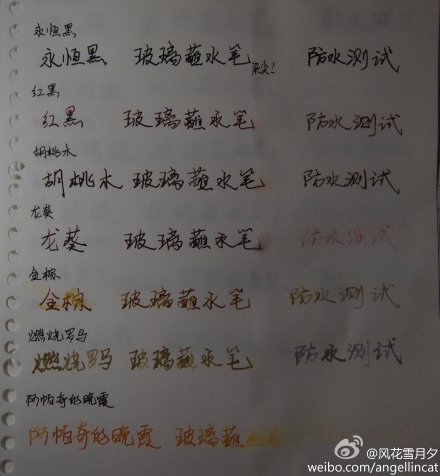 永恒黑
永恒黑 玻璃蘸水笔 亲定! 防水测试
红黑
红黑 玻璃蘸水笔 防水测试
胡桃木
胡桃木 玻璃蘸水笔 防水测试
龙葵
龙葵 玻璃蘸水笔 防水测试
金棕
金棕 玻璃蘸水笔 防水测试
燃烧罗马
燃烧罗马 玻璃蘸水笔 防水测试
阿帕奇的晚霞
阿帕奇的晚霞 玻璃蘸水笔
@风花雪月夕
weibo.com/angellincat